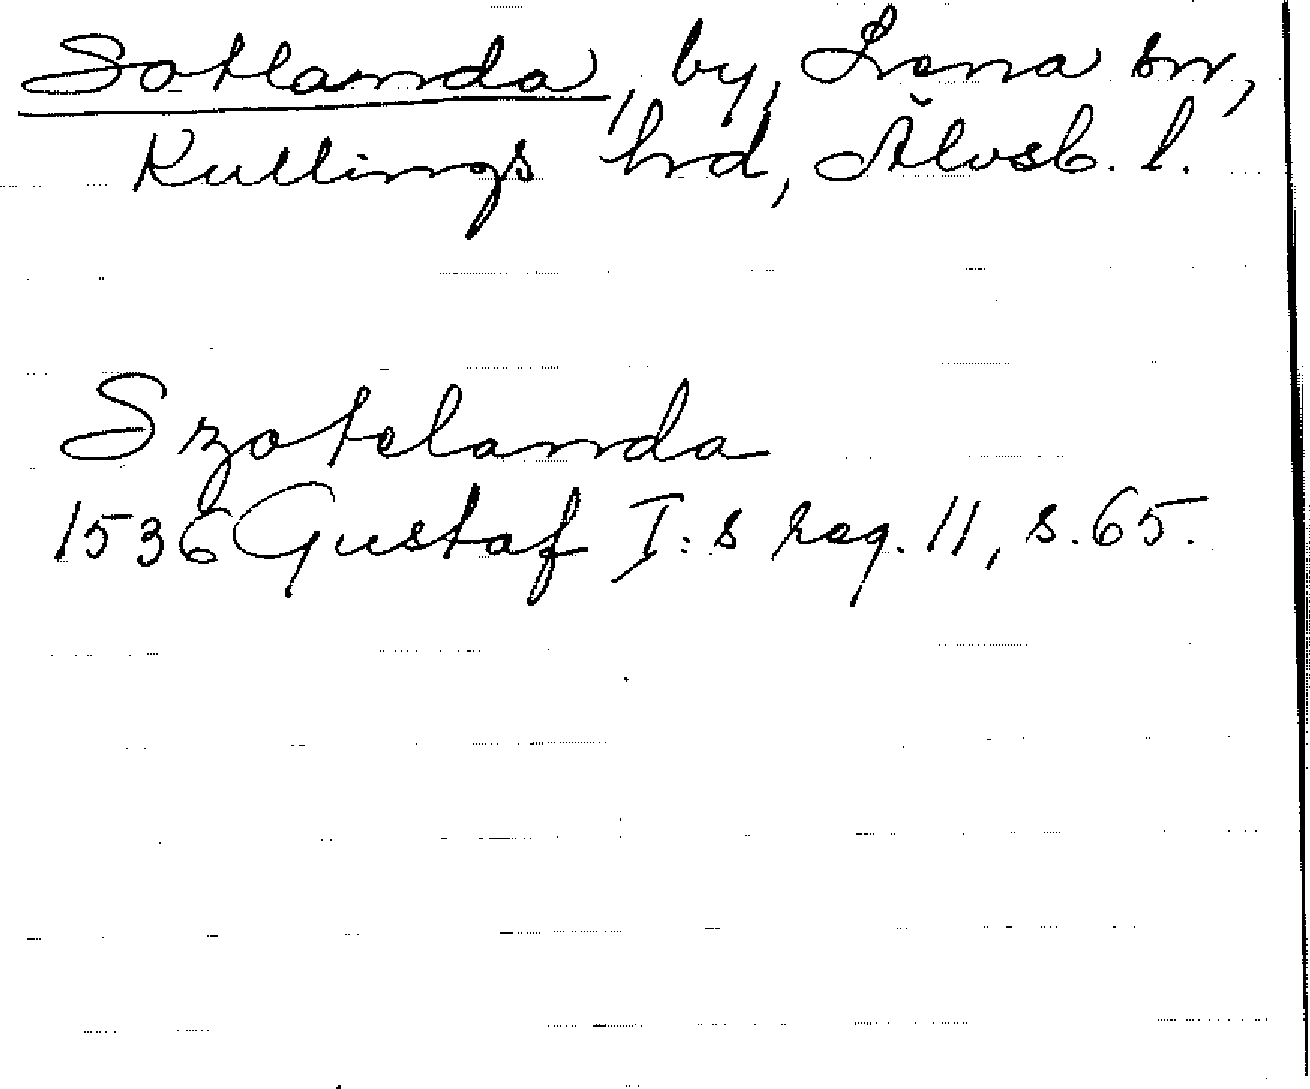 Sotlanda, by, Lena sn,
Kullings hrd, Älvsb. l.
Szotelanda
1536 Gustaf I:s reg. 11, s. 65.